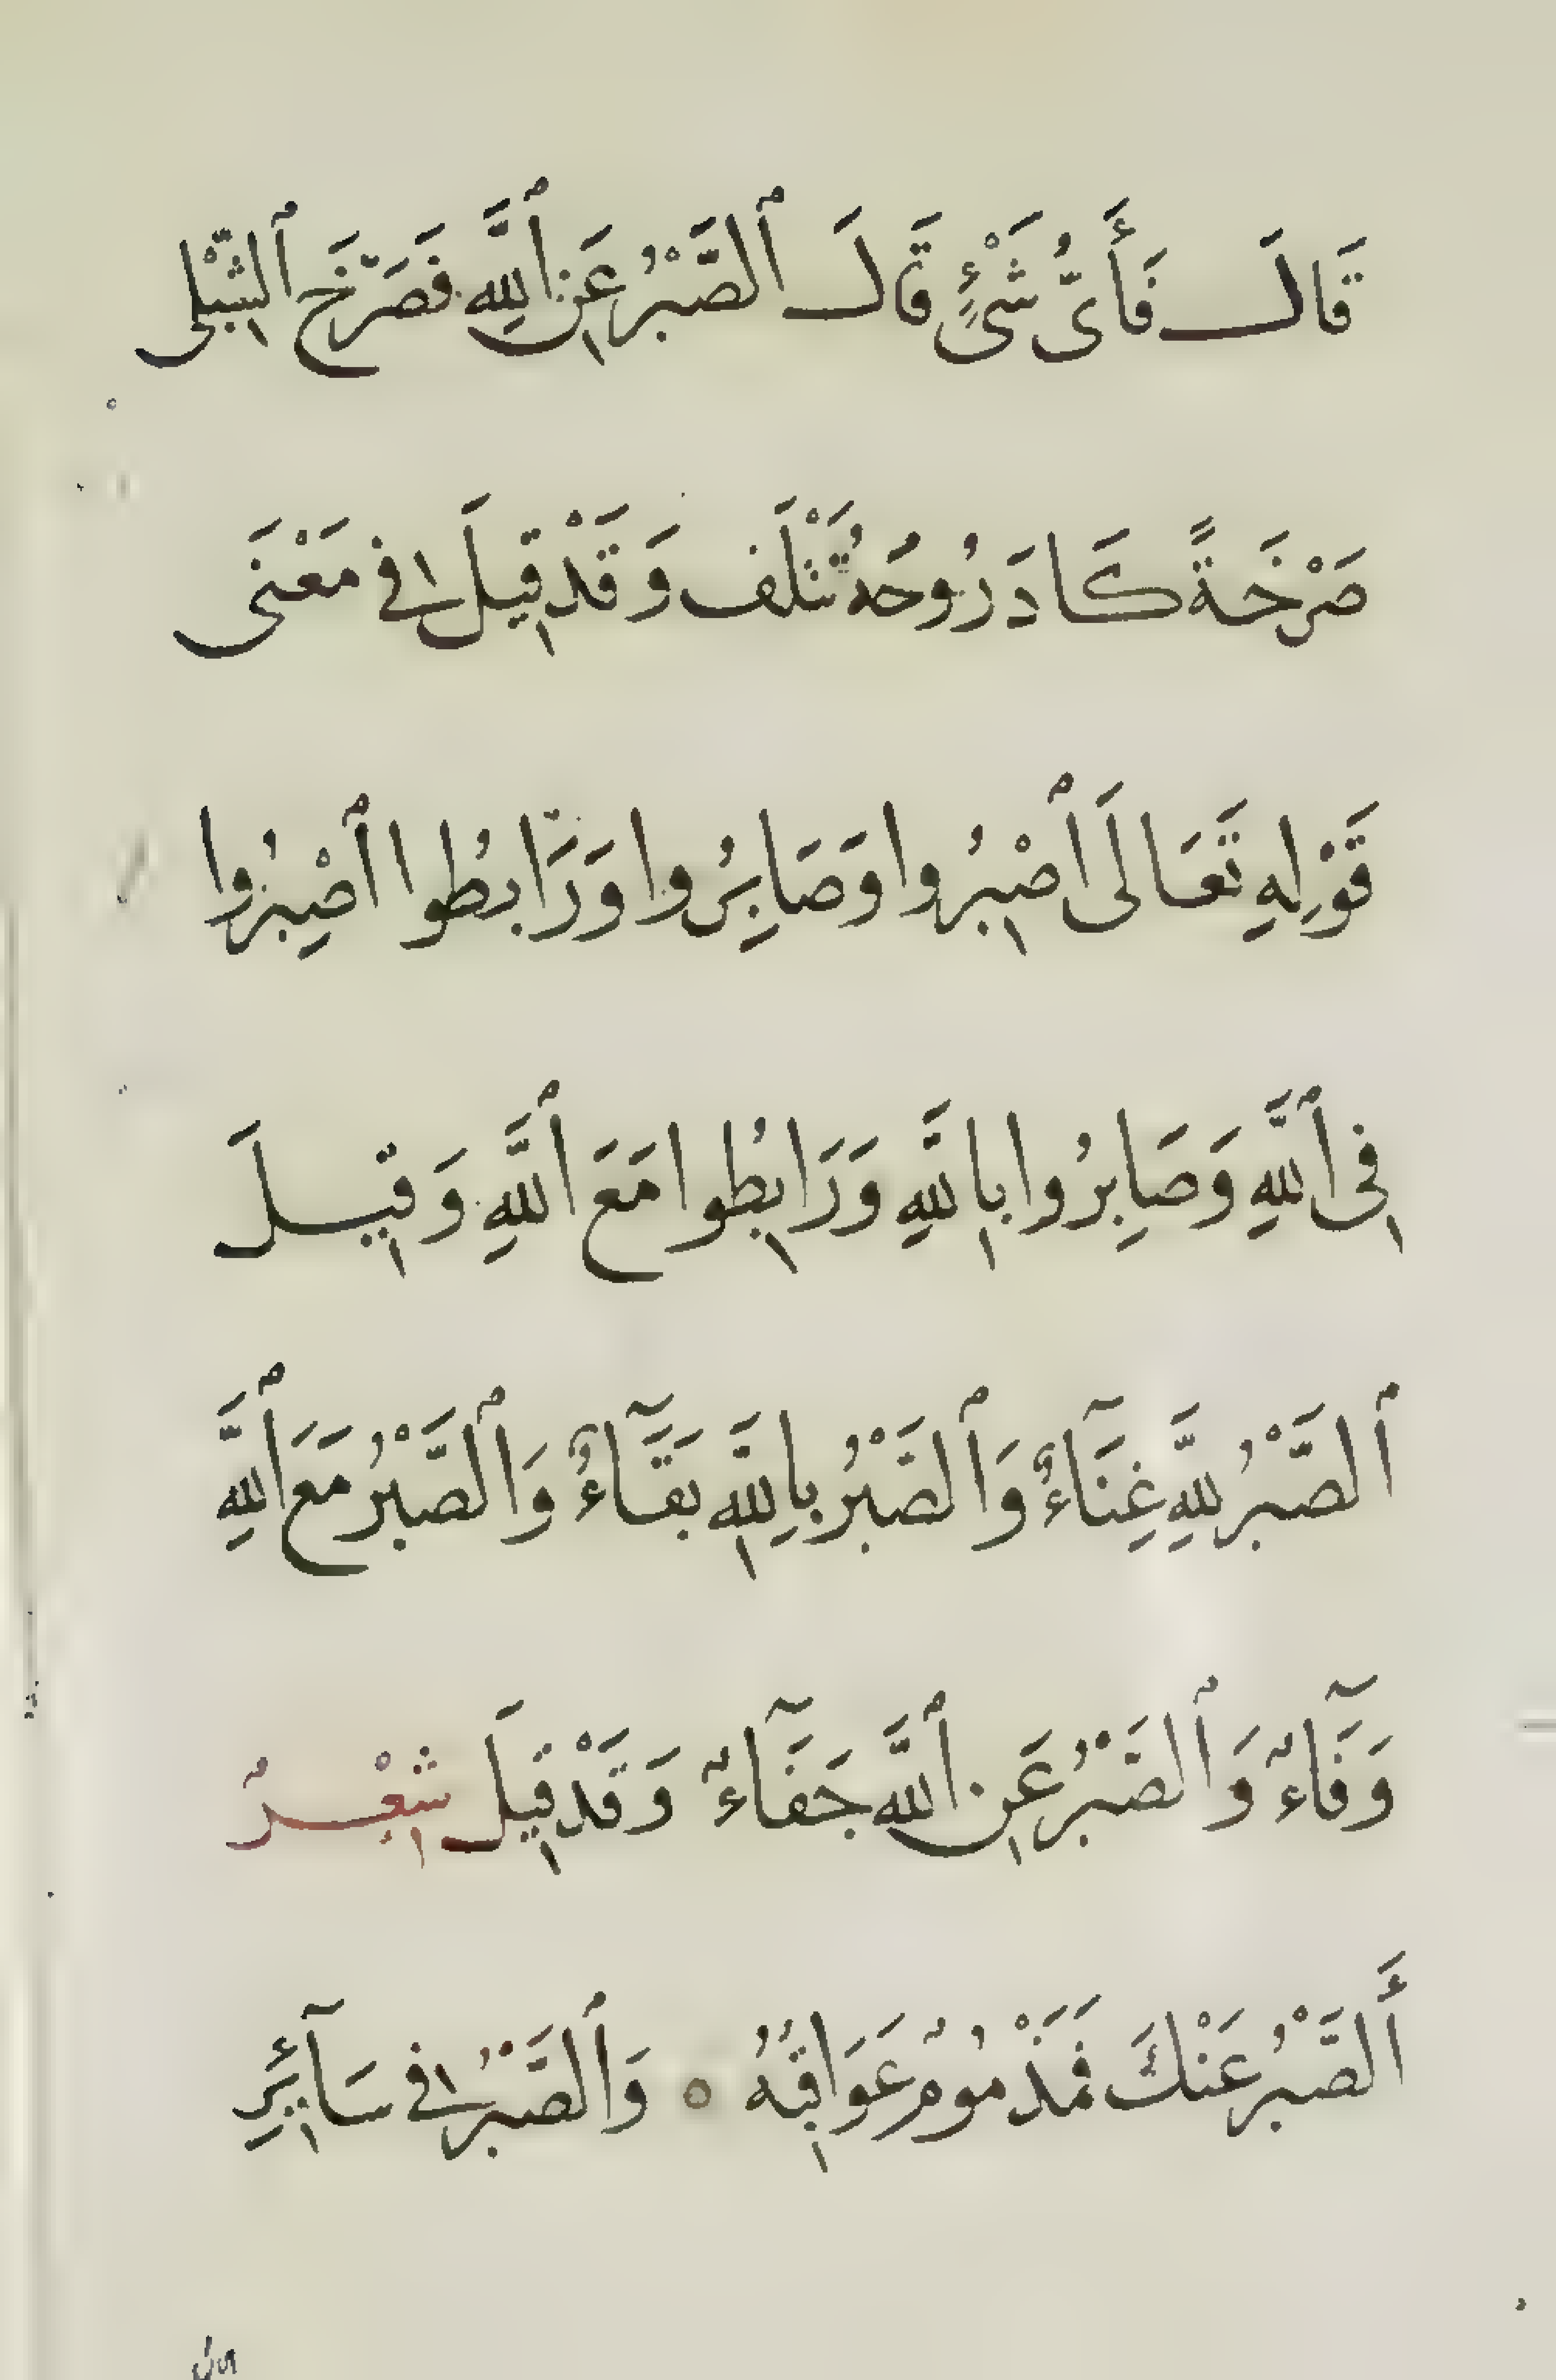 قَالَ فَأَىُّ شَىْءٍ قَالَ ٱلصَّبْرُ عَنِ ٱللَّهِ فَصَرَخَ ٱلشِّبْلِى
صَرْخَةً كَادَ رُوحُهُ تَتْلَف وَقَدْ قِيلَ فِى مَعْنَى
قَوْلِهِ تَعَالَى ٱصْبِرُوا وَصَابِرُوا وَرَابِطُوا ٱصْبِرُوا
فِى ٱللَّهِ وَصَابِرُوا بِاللَّهِ وَرَابِطُوا مَعَ ٱللَّهِ وَقِيلَ
ٱلصَّبْرُ لِلَّهِ غِنَآءٌ وَٱلصَّبْرُ بِاللَّهِ بَقَآءٌ وَٱلصَّبْرُ مَعَ ٱللَّهِ
وَفَآءٌ وَٱلصَّبْرُ عَنِ ٱللَّهِ جَفَآءٌ وَقَدْ قِيلَ شِعْرٌ
أَلصَّبْرُ عَنْكَ فَمَذْمُومٌ عَوَاقِبُهُ ○ وَٱلصَّبْرُ فِى سَآئِرِ